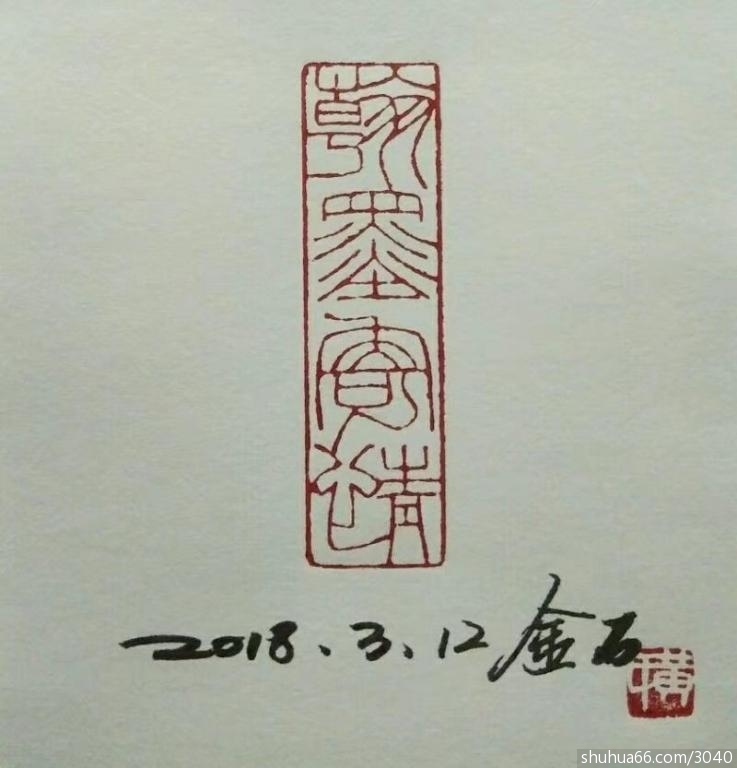 翰墨寄情
2018.3.12 金石
shuhua66.com/3040